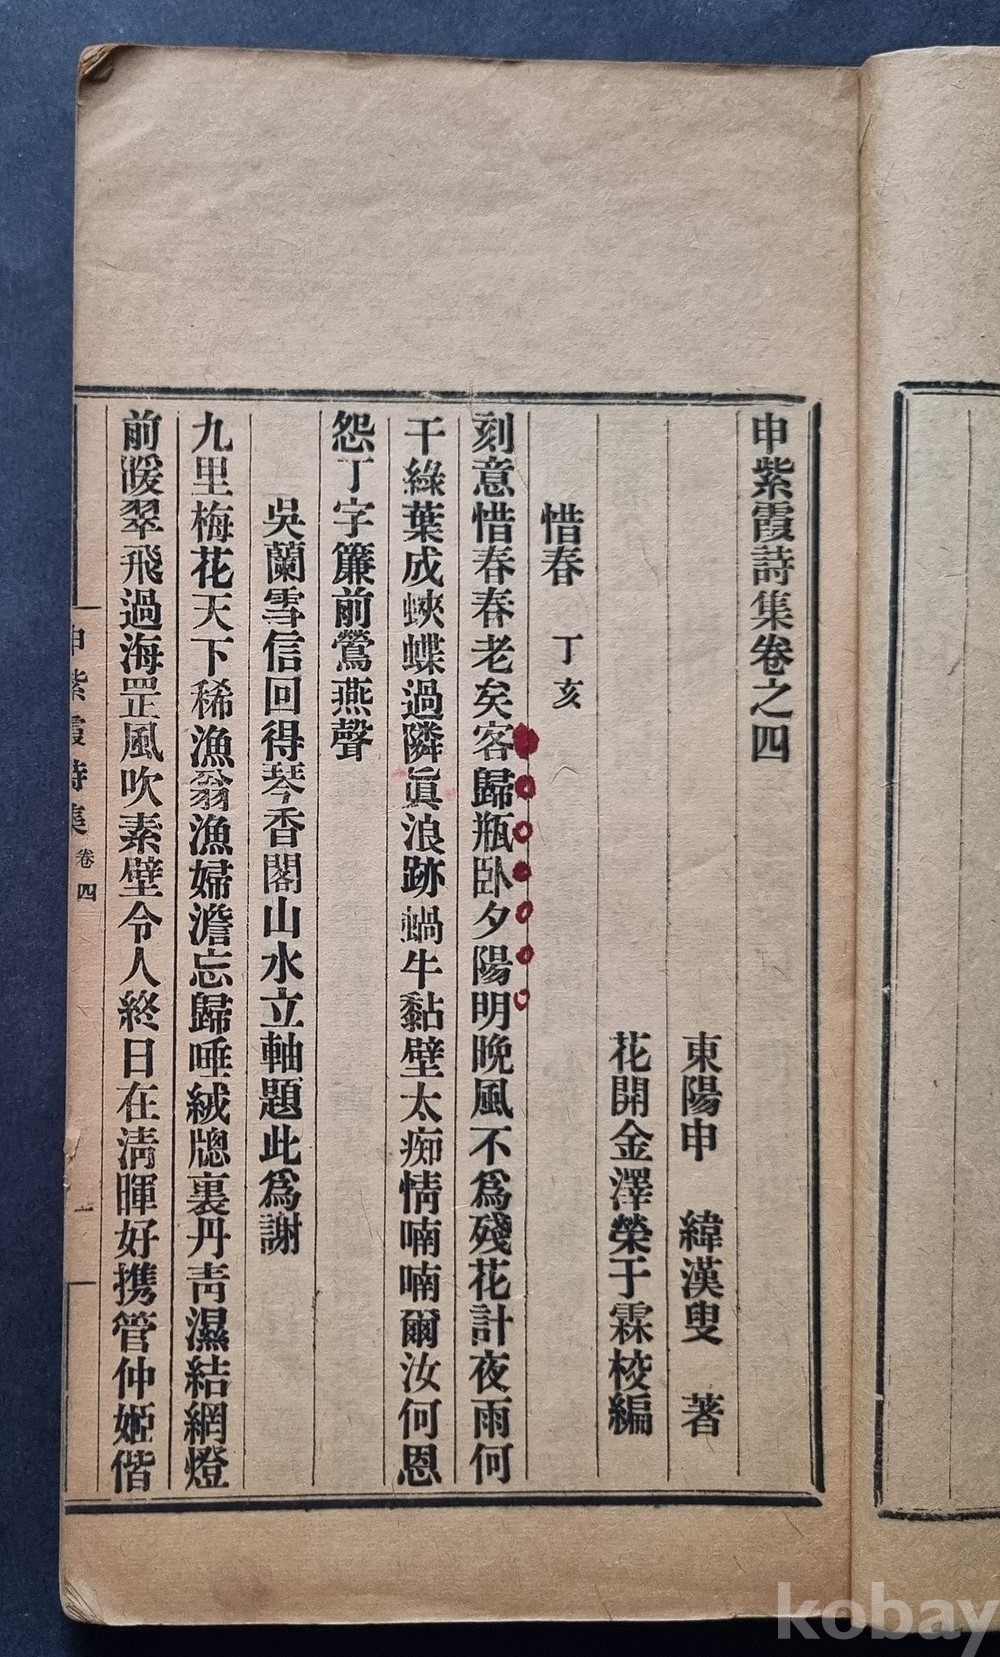 申紫霞詩集卷之四
東陽申 緯漢叟 著
花開金澤榮于霖校編
惜春 丁亥
刻意惜春春老矣客歸瓶臥夕陽明晚風不爲殘花計夜雨何
干綠葉成蛺蝶過隣眞浪跡蝸牛黏壁太痴情喃喃爾汝何恩
怨丁字簾前鶯燕聲
吳蘭雪信回得琴香閣山水立軸題此爲謝
九里梅花天下稀漁翁漁婦澹忘歸唾絨牕裏丹靑濕結網燈
前暖翠飛過海罡風吹素壁令人終日在淸暉好携管仲姬偕
申紫霞詩集 卷四 一
kobay